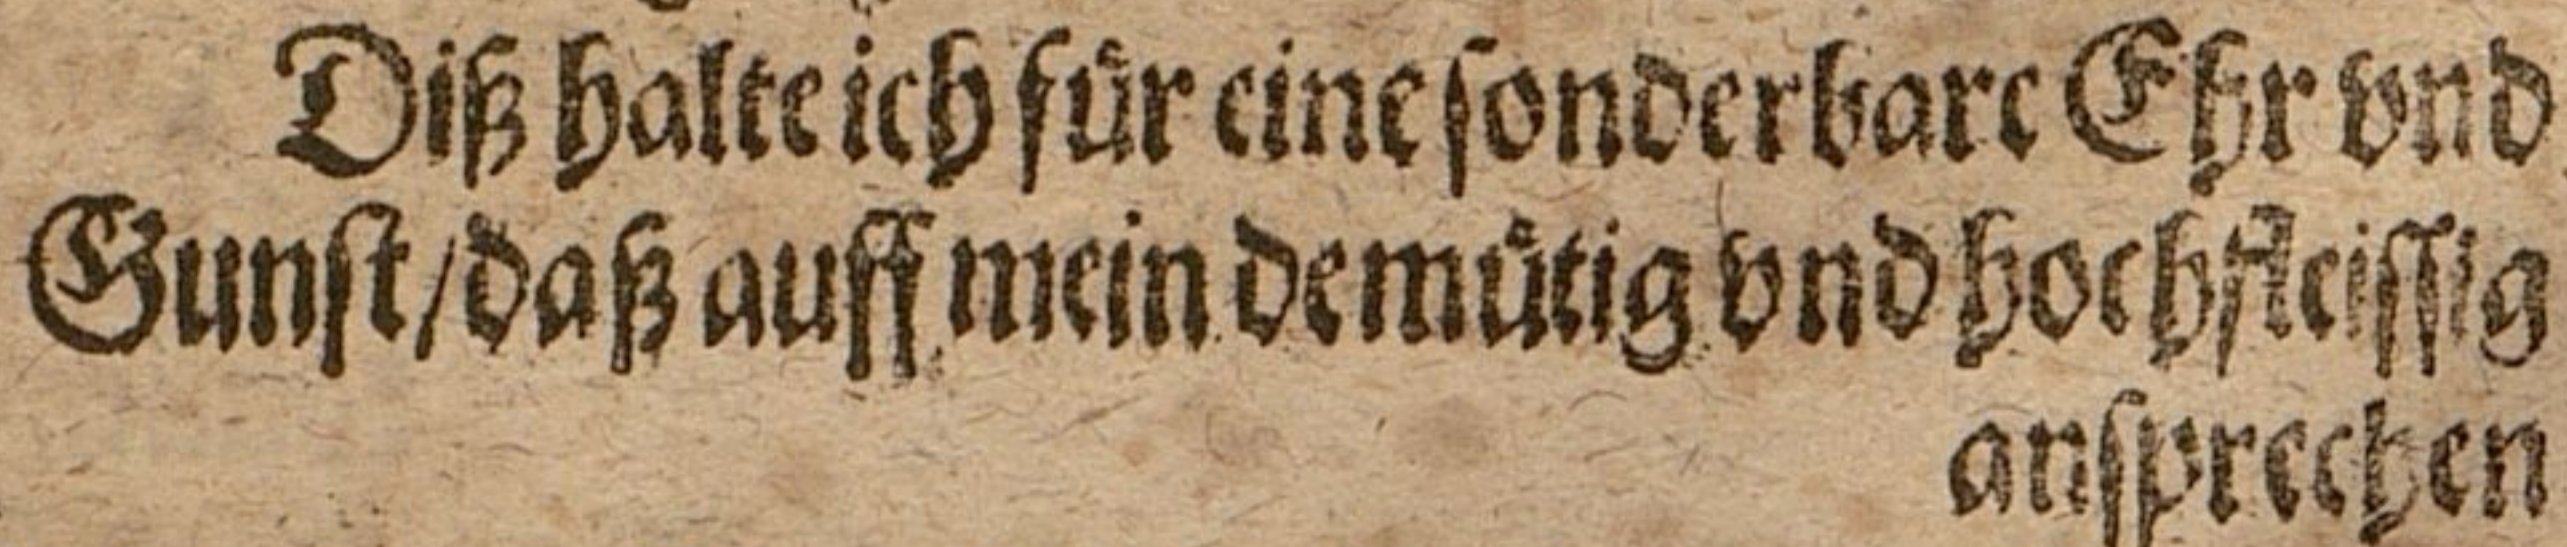 Diß halte ich fuͤr eine ſonderbare Ehr vnd
Gunſt / daß auff mein demuͤtig vnd hochfleiſſig
anſprechen